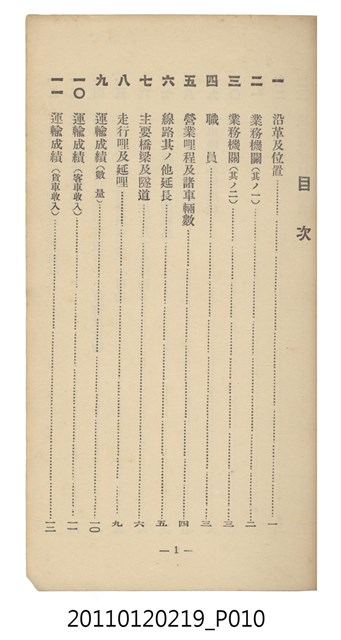 目次
一 沿革及位置 一
二 業務機關(其ノ一) 二
三 業務機關(其ノ二) 三
四 職員 三
五 營業哩程及諸車輛數 四
六 線路其ノ他延長 五
七 主要橋梁及隧道 六
八 走行哩及延哩 九
九 運輸成績(數量) 一〇
一〇 運輸成績(客車收入) 一一
一一 運輸成績(貨車收入) 一二
— 1 —
20110120219_P010